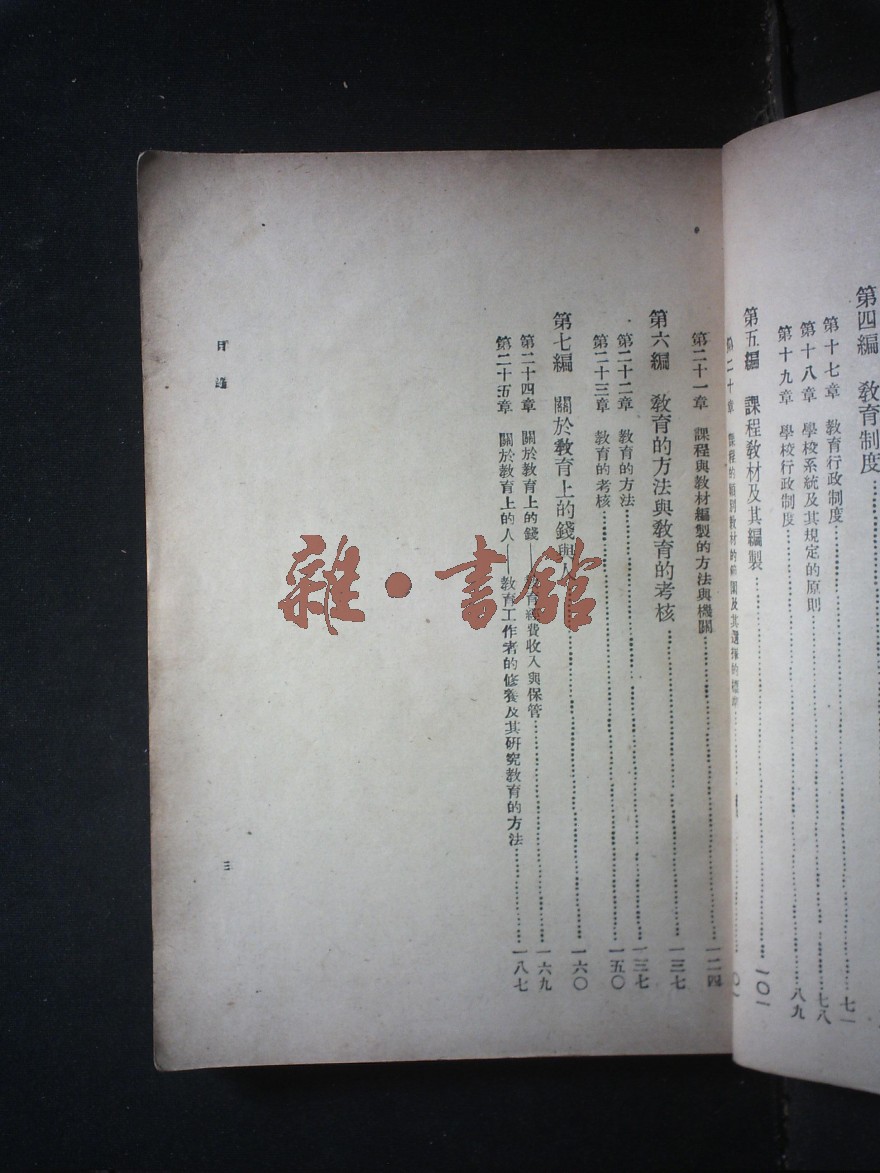 第四編 教育制度
第十七章 教育行政制度……七一
第十八章 學校系統及其規定的原則……七八
第十九章 學校行政制度……八九
第五編 課程教材及其編製……一〇一
第二十章 課程的類別教材的範圍及其選擇的標準……一〇一
第二十一章 課程與教材編製的方法與機關……一二四
第六編 教育的方法與教育的考核……一三七
第二十二章 教育的方法……一三七
第二十三章 教育的考核……一五〇
第七編 關於教育上的錢與人……一六〇
第二十四章 關於教育上的錢——教育經費收入與保管……一六九
第二十五章 關於教育上的人——教育工作者的修養及其研究教育的方法……一八七
目錄
三
雜·書館